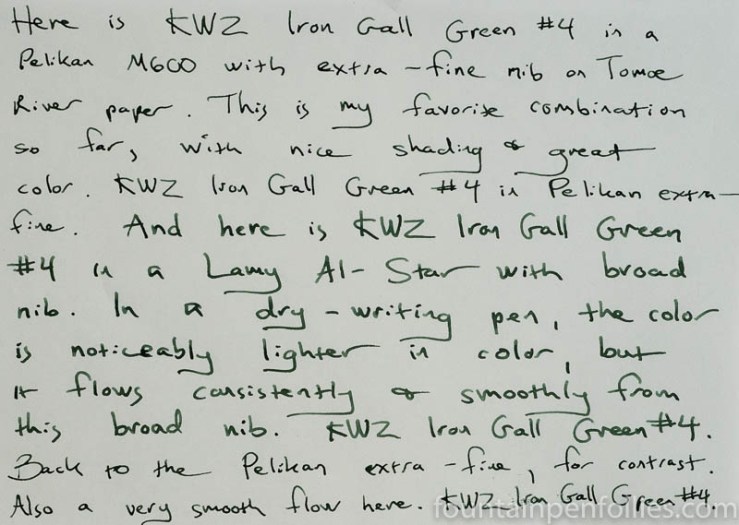 Here is KWZ Iron Gall Green #4 in a
Pelikan M600 with extra-fine nib on Tomoe
River paper. This is my favorite combination
so far, with nice shading & great
color. KWZ Iron Gall Green #4 in Pelikan extra-
fine. And here is KWZ Iron Gall Green
#4 in a Lamy Al-Star with broad
nib. In a dry-writing pen, the color
is noticeably lighter in color, but
it flows consistently & smoothly from
this broad nib. KWZ Iron Gall Green #4.
Back to the Pelikan extra-fine, for contrast.
Also a very smooth flow here. KWZ Iron Gall Green #4.
fountainpenfollies.com